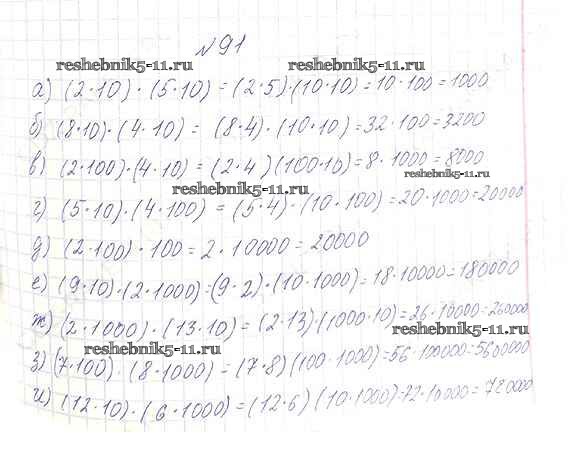 №91
reshebnik5-11.ru reshebnik5-11.ru
а) (2·10)·(5·10) = (2·5)·(10·10) = 10·100 = 1000
б) (8·10)·(4·10) = (8·4)·(10·10) = 32·100 = 3200
в) (2·100)·(4·10) = (2·4)(100·10) = 8·1000 = 8000
reshebnik5-11.ru reshebnik5-11.ru
г) (5·10)·(4·100) = (5·4)·(10·100) = 20·1000 = 20000
д) (2·100)·100 = 2·10000 = 20000
е) (9·10)·(2·1000) = (9·2)·(10·1000) = 18·10000 = 180000
ж) (2·1000)·(13·10) = (2·13)(1000·10) = 26·10000 = 260000
reshebnik5-11.ru reshebnik5-11.ru
з) (7·100)·(8·1000) = (7·8)(100·1000) = 56·100000 = 5600000
и) (12·10)·(6·1000) = (12·6)(10·1000) = 72·10000 = 720000